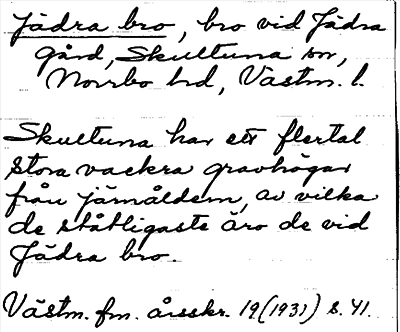 Jädra bro, bro vid Jädra
gård, Skultuna sn,
Norrbo hd, Västm. l.
Skultuna har ett flertal
stora vackra gravhögar
från järnåldern, av vilka
de ståtligaste äro de vid
Jädra bro.
Västm. fm. årsskr. 19 (1931) s. 41.